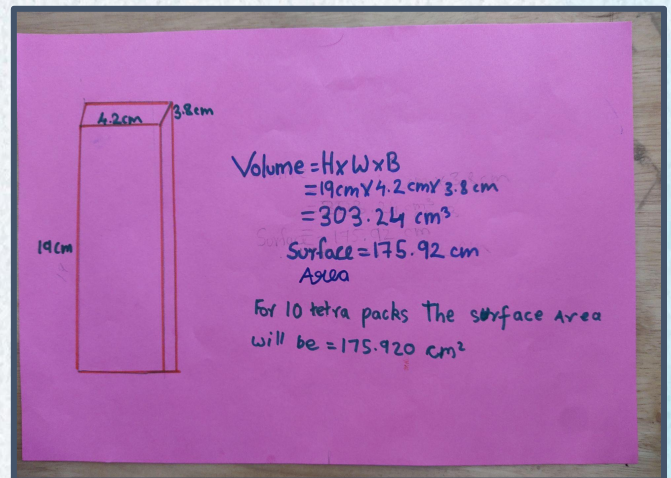 4.2cm
3.8cm
19cm
Volume = H x W x B
= 19cm x 4.2 cm x 3.8 cm
= 303.24 cm³
Surface = 175.92 cm
Area
For 10 tetra packs The surface Area
will be = 175.920 cm²